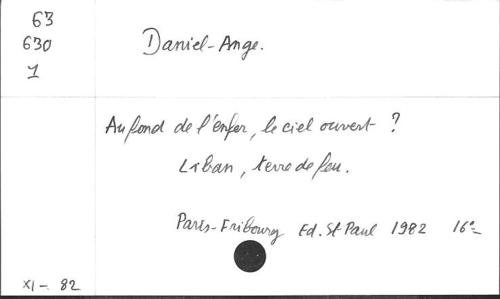 63
630
1
Daniel-Ange.
Au fond de l'enfer, le ciel ouvert ?
Liban, terre de feu.
Paris-Fribourg Ed. St Paul 1982 16°
XI - 82